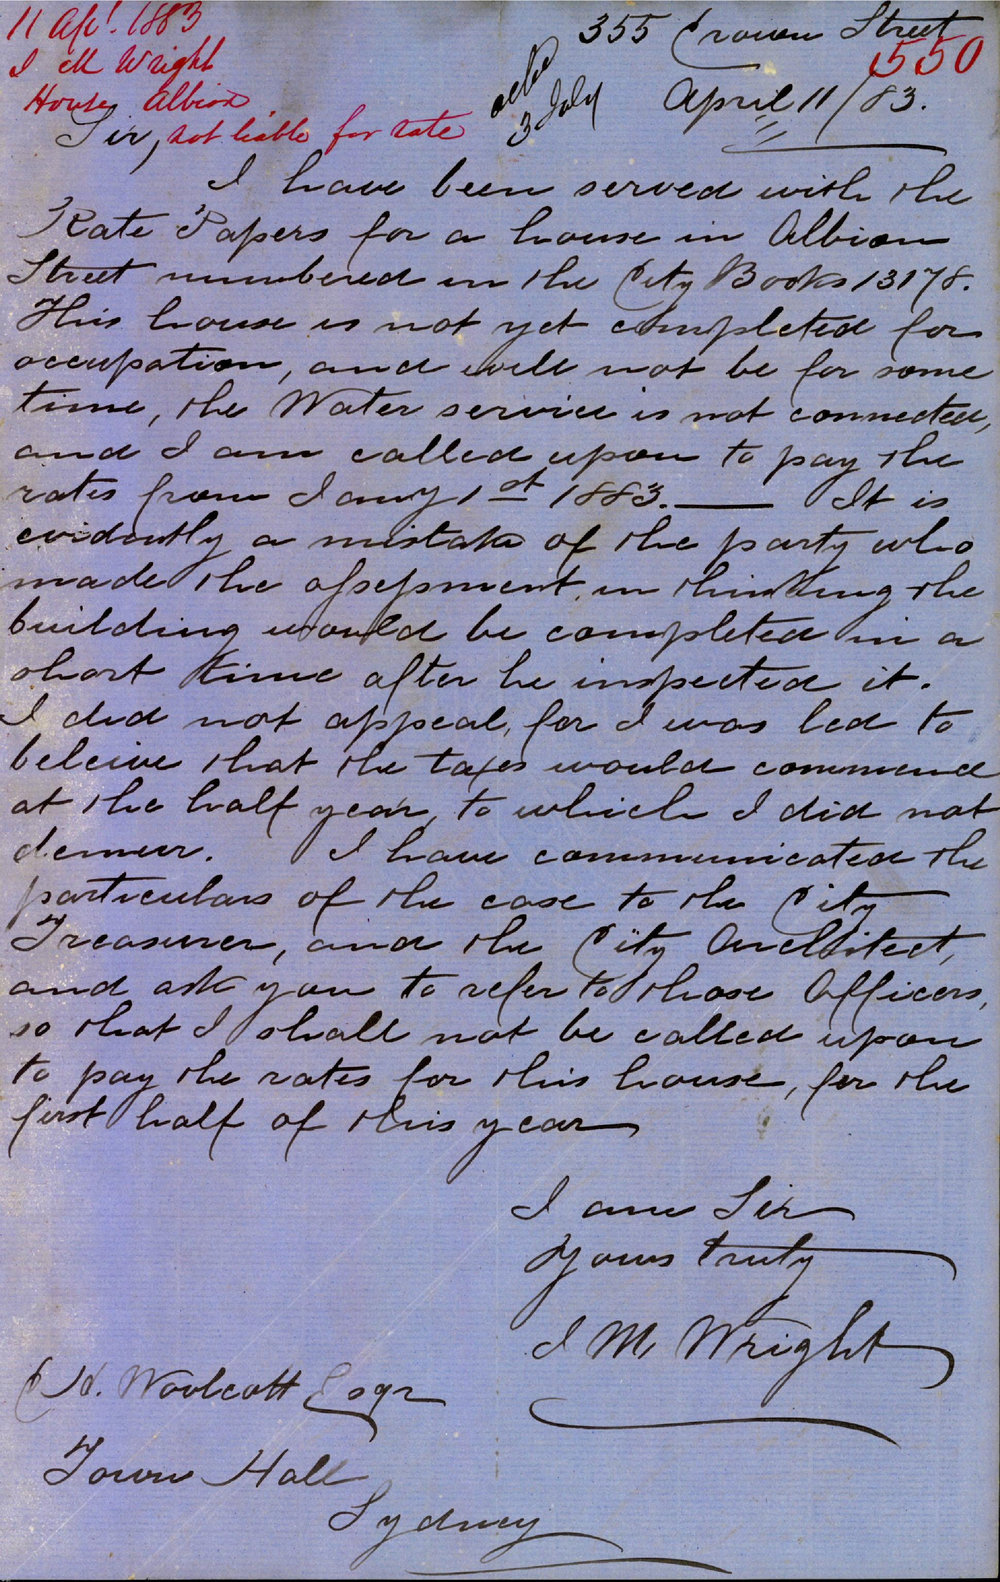 11 Apl. 1883
J M Wright
House Albion
not liable for rate
3 July
550
355 Crown Street
April 11/83.
Sir,
I have been served with the
Rate Papers for a house in Albion
Street numbered in the City Books 13178.
This house is not yet completed for
occupation, and will not be for some
time, the Water service is not connected,
and I am called upon to pay the
rates from Jany 1st 1883. — It is
evidently a mistake of the party who
made the assessment, in thinking the
building would be completed in a
short time after he inspected it.
I did not appeal, for I was led to
beleive that the taxes would commence
at the half year, to which I did not
demur. I have communicated the
particulars of the case to the City
Treasurer, and the City Architect,
and ask you to refer to those Officers,
so that I shall not be called upon
to pay the rates for this house, for the
first half of this year
I am Sir
Yours truly
J M, Wright
C H. Woolcott Esqr
Town Hall
Sydney